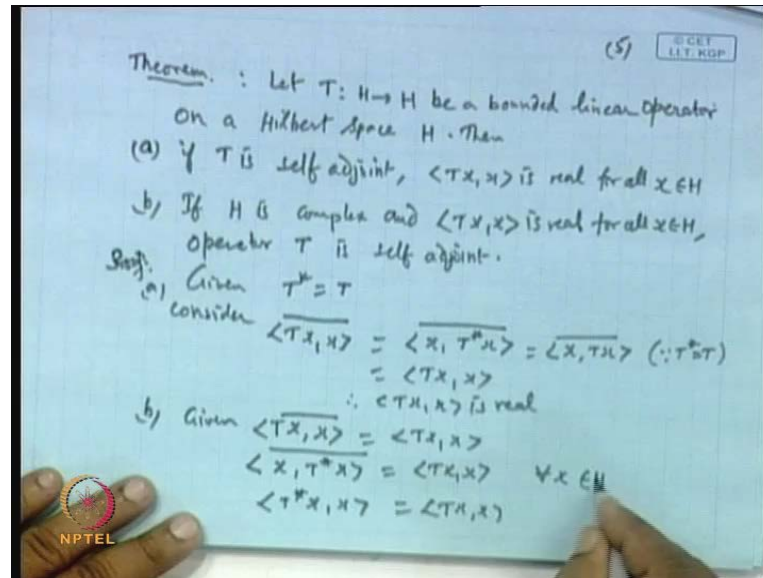 (5)
© CET
I.I.T. KGP
Theorem. : Let T: H→H be a bounded linear operator
on a Hilbert space H. Then
(a) if T is self adjoint, <Tx,x> is real for all x∈H
b, If H is complex and <Tx,x> is real for all x∈H,
operator T is self adjoint.
Proof. (a) Given T* = T
consider \overline{<Tx,x>} = \overline{<x, T*x>} = \overline{<x,Tx>} (∵T*=T)
= <Tx,x>
∴ <Tx,x> is real
b, Given \overline{<Tx,x>} = <Tx,x>
\overline{<x, T*x>} = <Tx,x> ∀x∈H
<T*x,x> = <Tx,x>
NPTEL